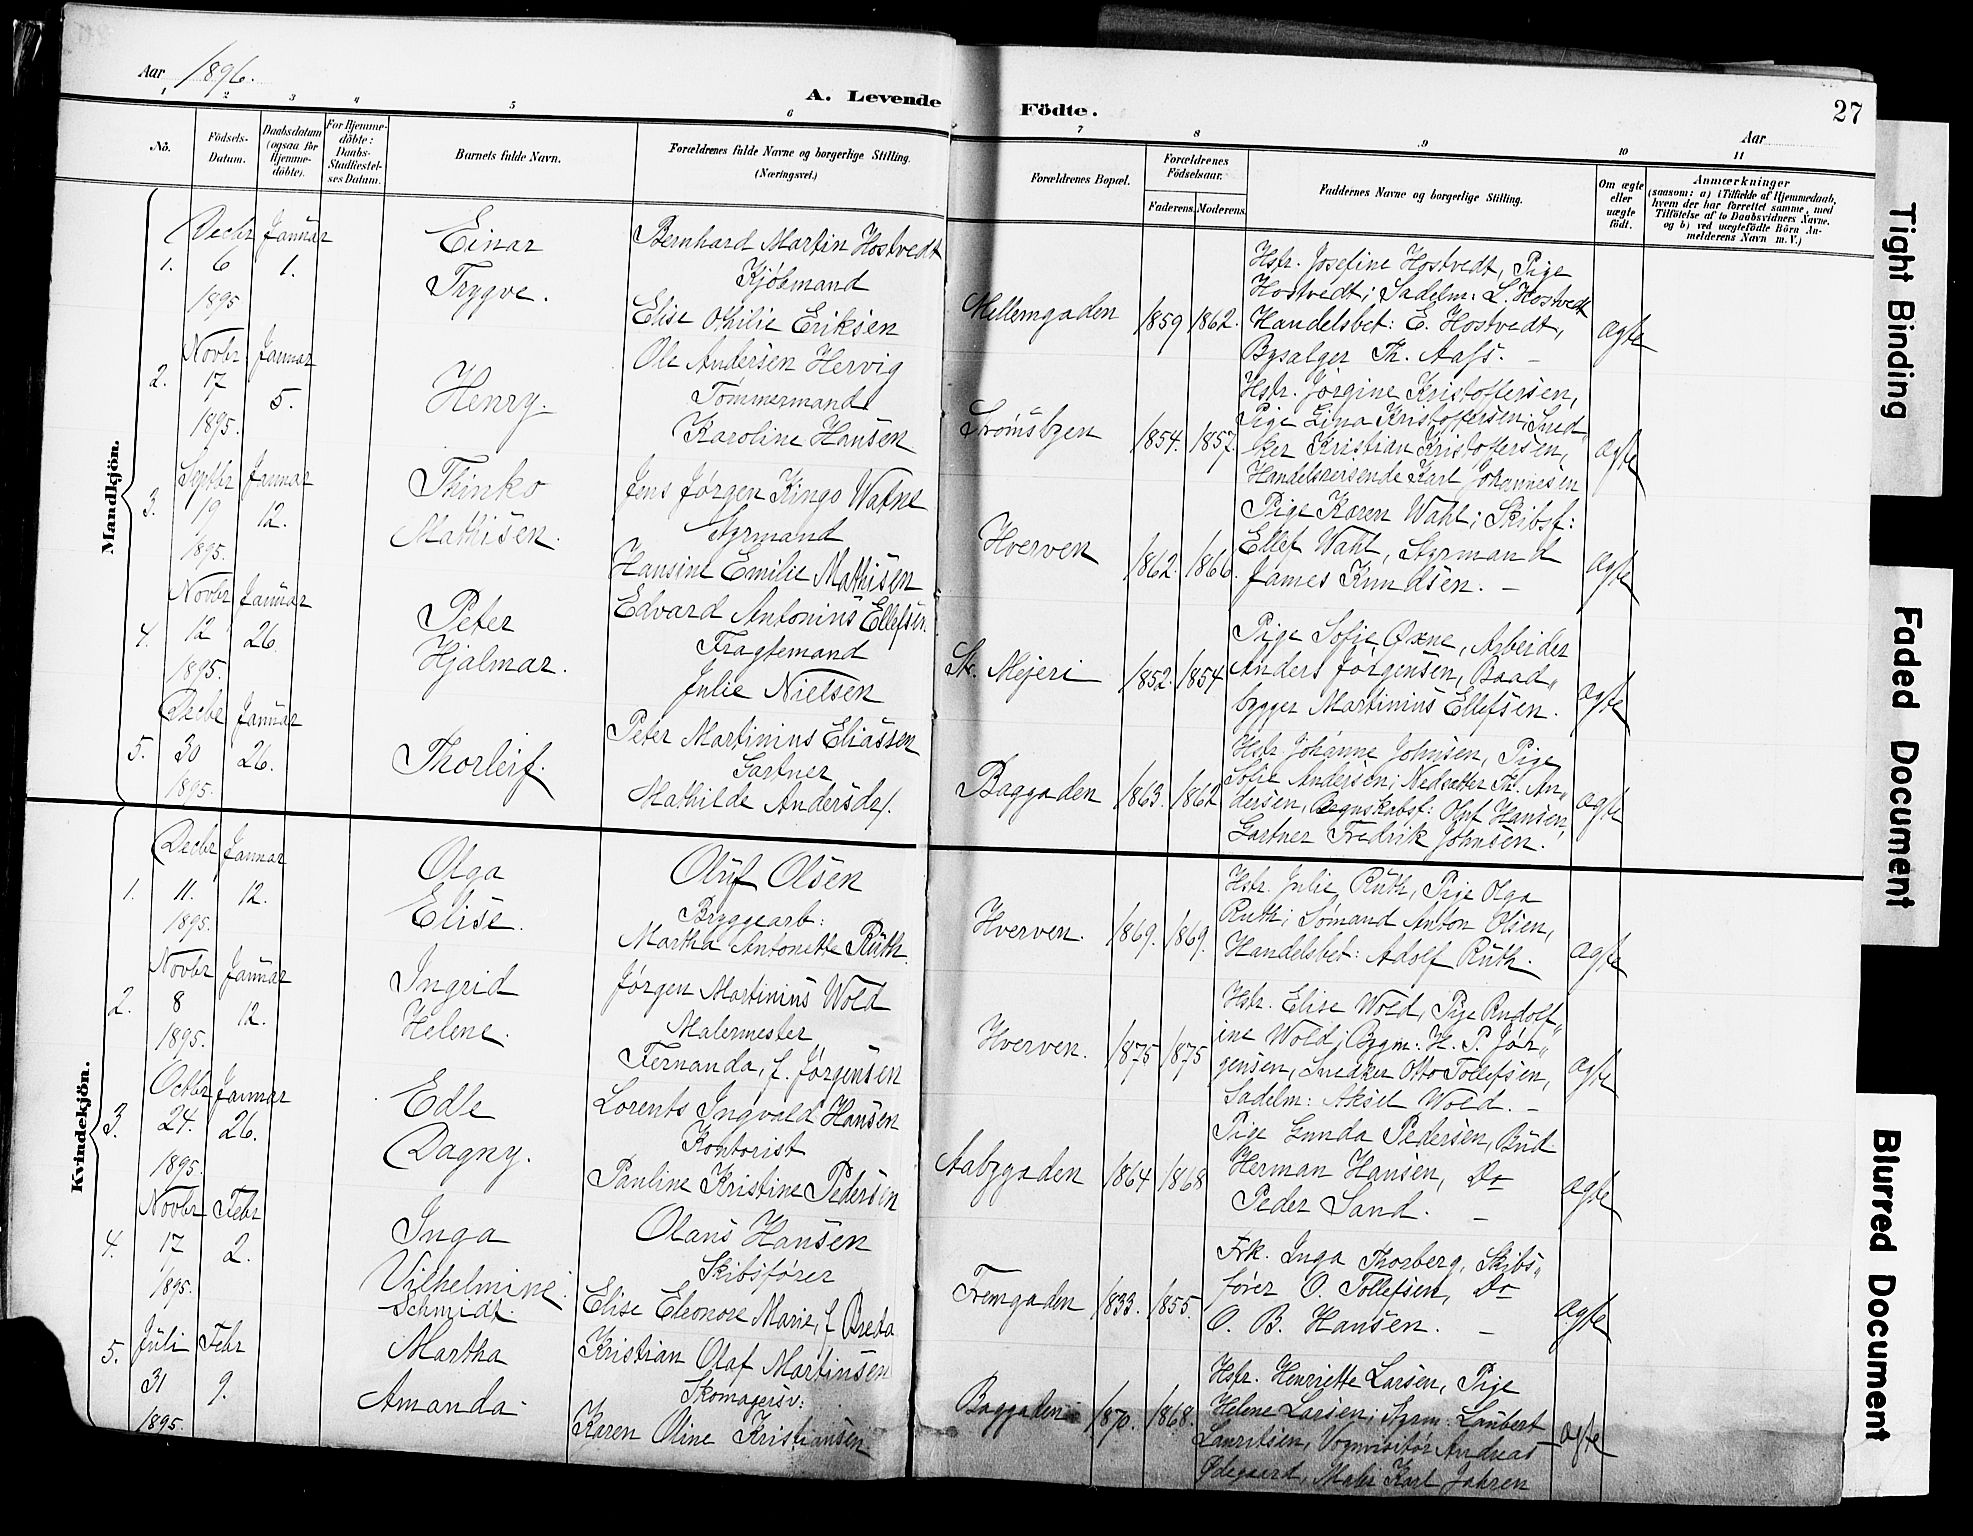 Aar 1896.
A. Levende Födte.
27
Aar
1 2 3 4 5 6 7 8 9 10 11
No.
Födsels-Datum.
Daabsdatum (ogsaa for Hjemmedöbte).
For Hjemmedöbte: Daabs-Stadfæstelses Datum.
Barnets fulde Navn.
Forældrenes fulde Navne og borgerlige Stilling. (Næringsvei.)
Forældrenes Bopæl.
Forældrenes Födselsaar.
Faderens. Moderens.
Faddernes Navne og borgerlige Stilling.
Om ægte eller uægte födt.
Anmærkninger
(saasom: a) i Tilfælde af Hjemmedaab, hvem der har forrettet samme, med Tilföielse af to Daabsvidners Navne, og b) ved uægtefödte Börn Anmelderens Navn m. V.)
Mandkjön.
1.
Decbr 6 1895
Januar 1.
Einar
Trygve.
Bernhard Martin Hostvedt
Kjøbmand
Elise Othilie Eriksen
Mellemgaden
1859 1862.
Hstr. Josefine Hostvedt, Pige
Hostvedt; Sadelm: L. Hostvedt
Handelsbet: E. Hostvedt,
Bysælger Th. Aass. –
ægte
2.
Novbr 17 1895.
Januar 5.
Henry.
Ole Andersen Hervig
Tømmermand
Karoline Hansen
Strømsbyen
1854. 1857.
Hstr. Jørgine Kristoffersen,
Pige Lina Kristoffersen; Sned
ker Kristian Kristoffersen,
Handelsreisende Karl Johannesen
ægte
3.
Septbr 19 1895.
Januar 12.
Thinko
Mathisen.
Jens Jørgen Kingo Watne
Styrmand
Hansine Emilie Mathisen
Hverven
1862. 1866.
Pige Karen Wahl; Skibsf:
Ellef Wahl, Styrmand
James Knudsen. –
ægte
4.
Novbr 12 1895.
Januar 26.
Peter
Hjalmar.
Edvard Antonius Ellefsen.
Fragtemand
Julie Nielsen
St. Mejeri
1852. 1854
Pige Sofie Oxne, Arbeider
Anders Jørgensen, Baad„
bygger Martinius Ellefsen.
ægte
5.
Decbr 30 1895.
Januar 26.
Thorleif.
Peter Martinius Eliassen
Gartner
Mathilde Andersdf.
Baggaden
1863. 1862
Hstr. Johanne Johnsen, Pige
Sofie Andersen; Nedsætter Th. An„
dersen, Regnskabsf: Oluf Hansen,
Gartner Fredrik Johnsen.
ægte
Kvindekjön.
1.
Decbr 11. 1895.
Januar 12.
Olga
Elise.
Oluf Olsen
Bryggearb:
Martha Antonette Ruth.
Hverven.
1869. 1869.
Hstr. Julie Ruth, Pige Olga
Ruth; Sømand Anton Olsen,
Handelsbet: Adolf Ruth.
ægte
2.
Novbr 8 1895.
Januar 12.
Ingrid
Helene.
Jørgen Martinius Wold
Malermester
Fernanda, f. Jørgensen
Hverven.
1875 1875
Hstr. Elise Wold, Pige Rudolf„
ine Wold; Bygm: H. P. Jør„
gensen, Snedker Otto Tollefsen,
Sadelm: Aksel Wold. –
ægte
3.
Octbr 24. 1895.
Januar 26.
Edle
Dagny.
Lorents Ingvald Hansen
Kontorist
Pauline Kristine Pedersen
Aabygaden
1864 1868
Pige Gunda Pedersen, Bud
Herman Hansen, Do
Peder Sand. –
ægte
4.
Novbr 17 1895.
Febr 2.
Inga
Vilhelmine
Schmidt.
Olaus Hansen
Skibsfører
Elise Eleonore Marie, f Breda
Fremgaden
1833. 1855.
Frk. Inga Thorberg, Skibs„
fører O. Tollefsen, Do
O. B. Hansen. –
ægte
5.
Juli 31 1895.
Febr 9.
Martha
Amanda
Kristian Olaf Martinsen
Skomagersv:
Karen Oline Kristiansen
Baggaden
1870. 1868.
Hstr. Henriette Larsen, Pige
Helene Larsen; Styrm: Laubert
Lauritsen, Vognvisitør Andreas
Ødegaard, Maler Karl Jahren
ægte
Tight Binding
Faded Document
Blurred Document